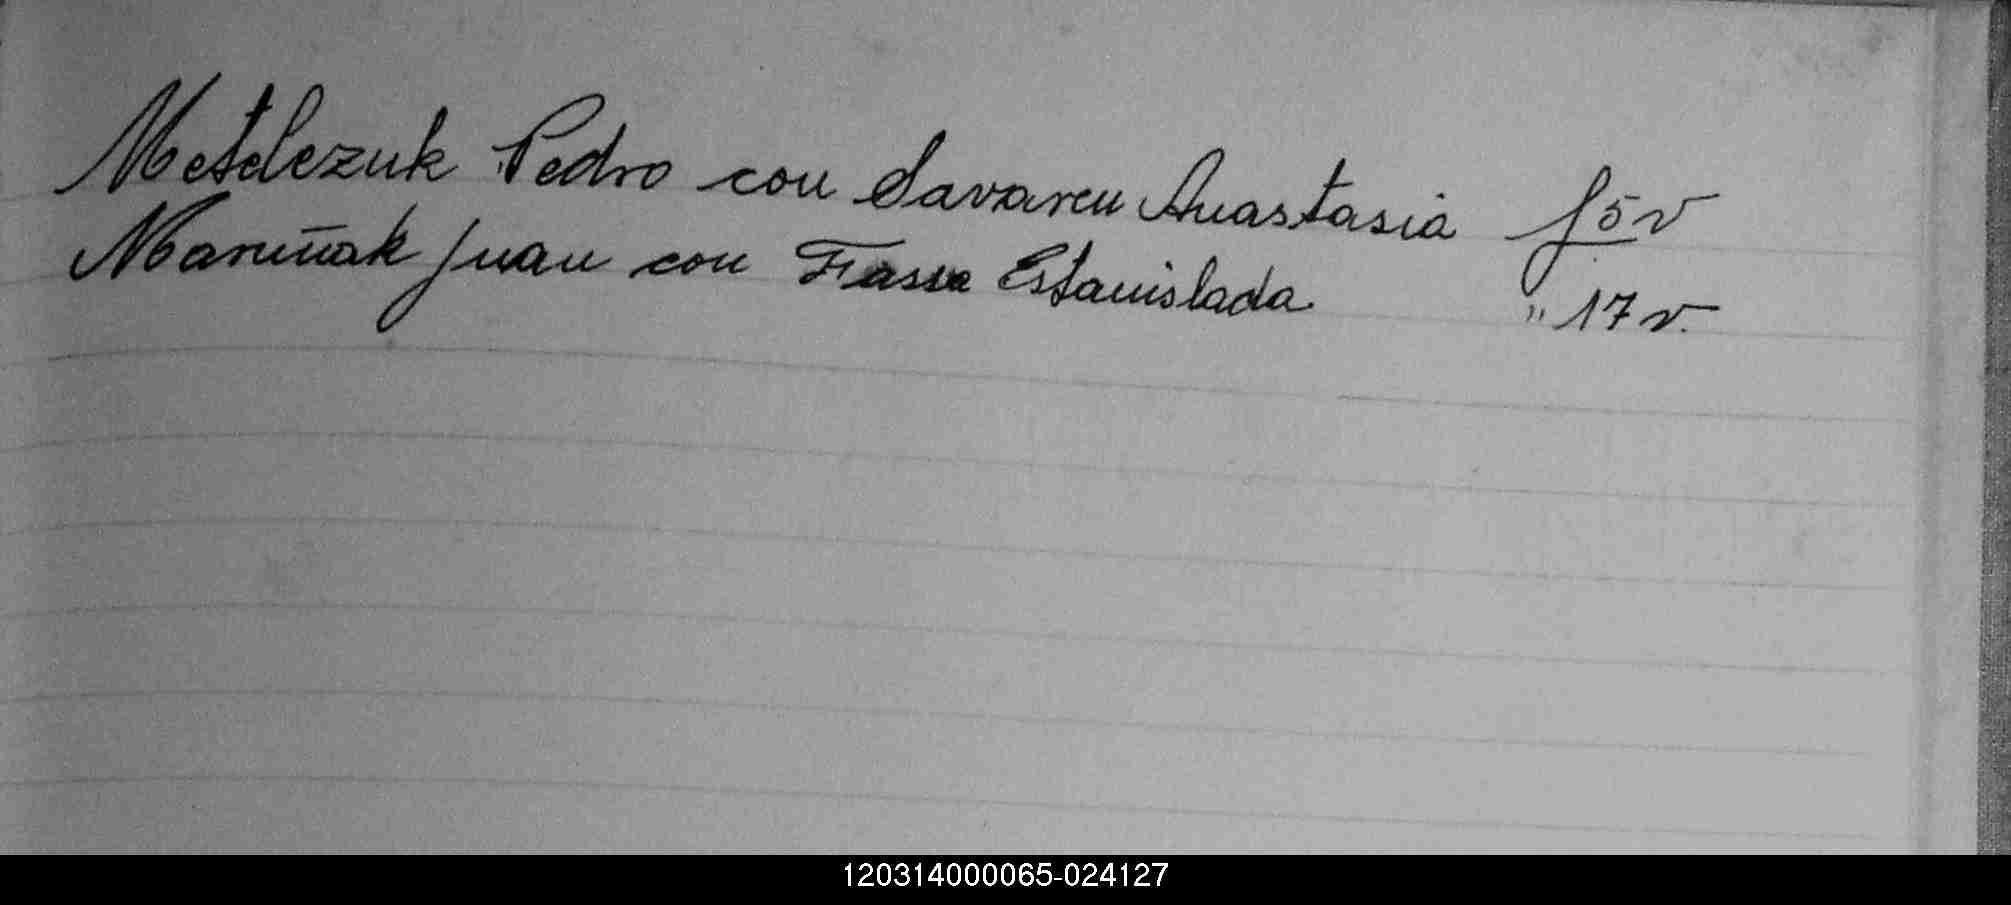 Metelezuk Pedro con Savareu Anastasia f 5 v
Maruñak Juan con Fassa Estanislada " 17 v.
120314000065-024127